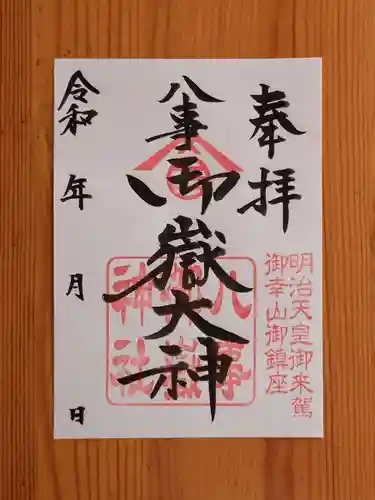 奉拝
明治天皇御来駕
御幸山御鎮座
八事
御嶽大神
八事
御嶽
神社
令和 年 月 日